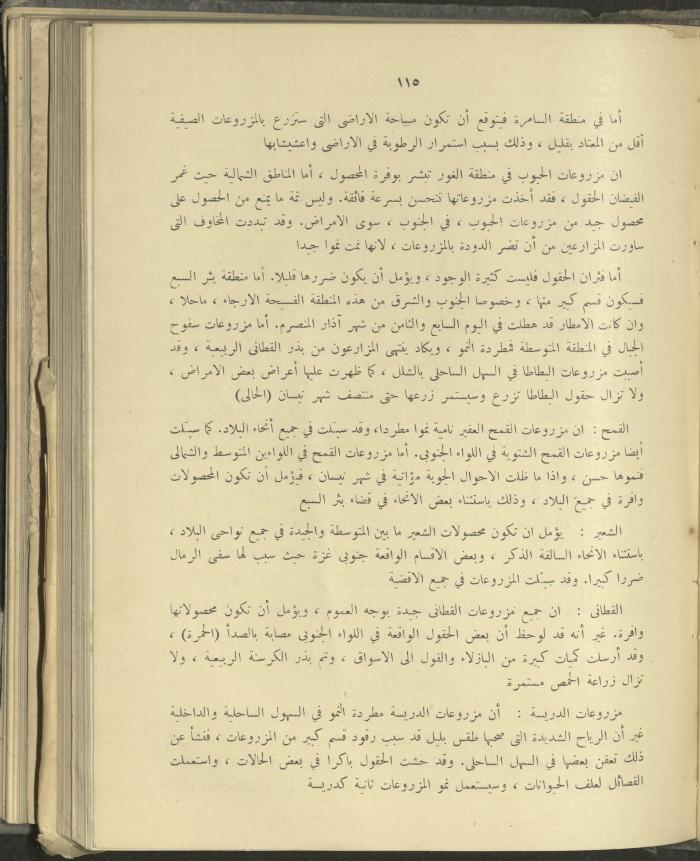 ١١٥
أما في منطقة السامرة فيتوقع أن تكون مساحة الاراضى التى ستزرع بالمزروعات الصيفية
أقل من المعتاد بقليل ، وذلك بسبب استمرار الرطوبة في الاراضى واعشيشابها
ان مزروعات الحبوب في منطقة الغور تبشر بوفرة المحصول ، أما المناطق الشمالية حيث غمر
الفيضان الحقول ، فقد أخذت مزروعاتها تتحسن بسرعة فائقة. وليس ثمة ما يمنع من الحصول على
محصول جيد من مزروعات الحبوب ، في الجنوب ، سوى الامراض. وقد تبددت المخاوف التى
ساورت المزارعين من أن تضر الدودة بالمزروعات ، لانها نمت نموا جيدا
أما فئران الحقول فليست كثيرة الوجود ، ويؤمل أن يكون ضررها قليلا. أما منطقة بئر السبع
فسيكون قسم كبير منها ، وخصوصا الجنوب والشرق من هذه المنطقة الفسيحة الارجاء ، ماحلا ،
وان كانت الامطار قد هطلت في اليوم السابع والثامن من شهر آذار المنصرم. أما مزروعات سفوح
الجبال في المنطقة المتوسطة فمطردة النمو ، ويكاد ينتهى المزارعون من بذر القطانى الربيعية ، وقد
أصيبت مزروعات البطاطا في السهل الساحلى بالشلل ، كما ظهرت عليها أعراض بعض الامراض ،
ولا تزال حقول البطاطا تزرع وسيستمر زرعها حتى منتصف شهر نيسان (الحالى)
القمح : ان مزروعات القمح العفير نامية نموا مطردا، وقد سبّلت في جميع أنحاء البلاد. كما سبّلت
أيضا مزروعات القمح الشتوية في اللواء الجنوبى. أما مزروعات القمح في اللواءين المتوسط والشمالى
فنموها حسن ، واذا ما ظلت الاحوال الجوية مؤاتية في شهر نيسان ، فيؤمل أن تكون المحصولات
وافرة في جميع البلاد ، وذلك باستثناء بعض الانحاء في قضاء بئر السبع
الشعير : يؤمل ان تكون محصولات الشعير ما بين المتوسطة والجيدة في جميع نواحى البلاد ،
باستثناء الانحاء السالفة الذكر ، وبعض الاقسام الواقعة جنوبى غزة حيث سبب لها سفى الرمال
ضررا كبيرا. وقد سبّلت المزروعات في جميع الاقضية
القطانى : ان جميع مزروعات القطانى جيدة بوجه العموم ، ويؤمل أن تكون محصولاتها
وافرة. غير أنه قد لوحظ أن بعض الحقول الواقعة في اللواء الجنوبى مصابة بالصدأ (الحمرة) ،
وقد أرسلت كميات كبيرة من البازلاء والفول الى الاسواق ، وتم بذر الكرسنة الربيعية ، ولا
تزال زراعة الحمص مستمرة
مزروعات الدريسة : أن مزروعات الدريسة مطردة النمو في السهول الساحلية والداخلية
غير أن الرياح الشديدة التى صحبها طقس بليل قد سبب رقود قسم كبير من المزروعات ، فنشأ عن
ذلك تعفن بعضها في السهل الساحلى. وقد حشت الحقول باكرا في بعض الحالات ، واستعملت
القصائل لعلف الحيوانات ، وسيستعمل نمو المزروعات ثانية كدريسة